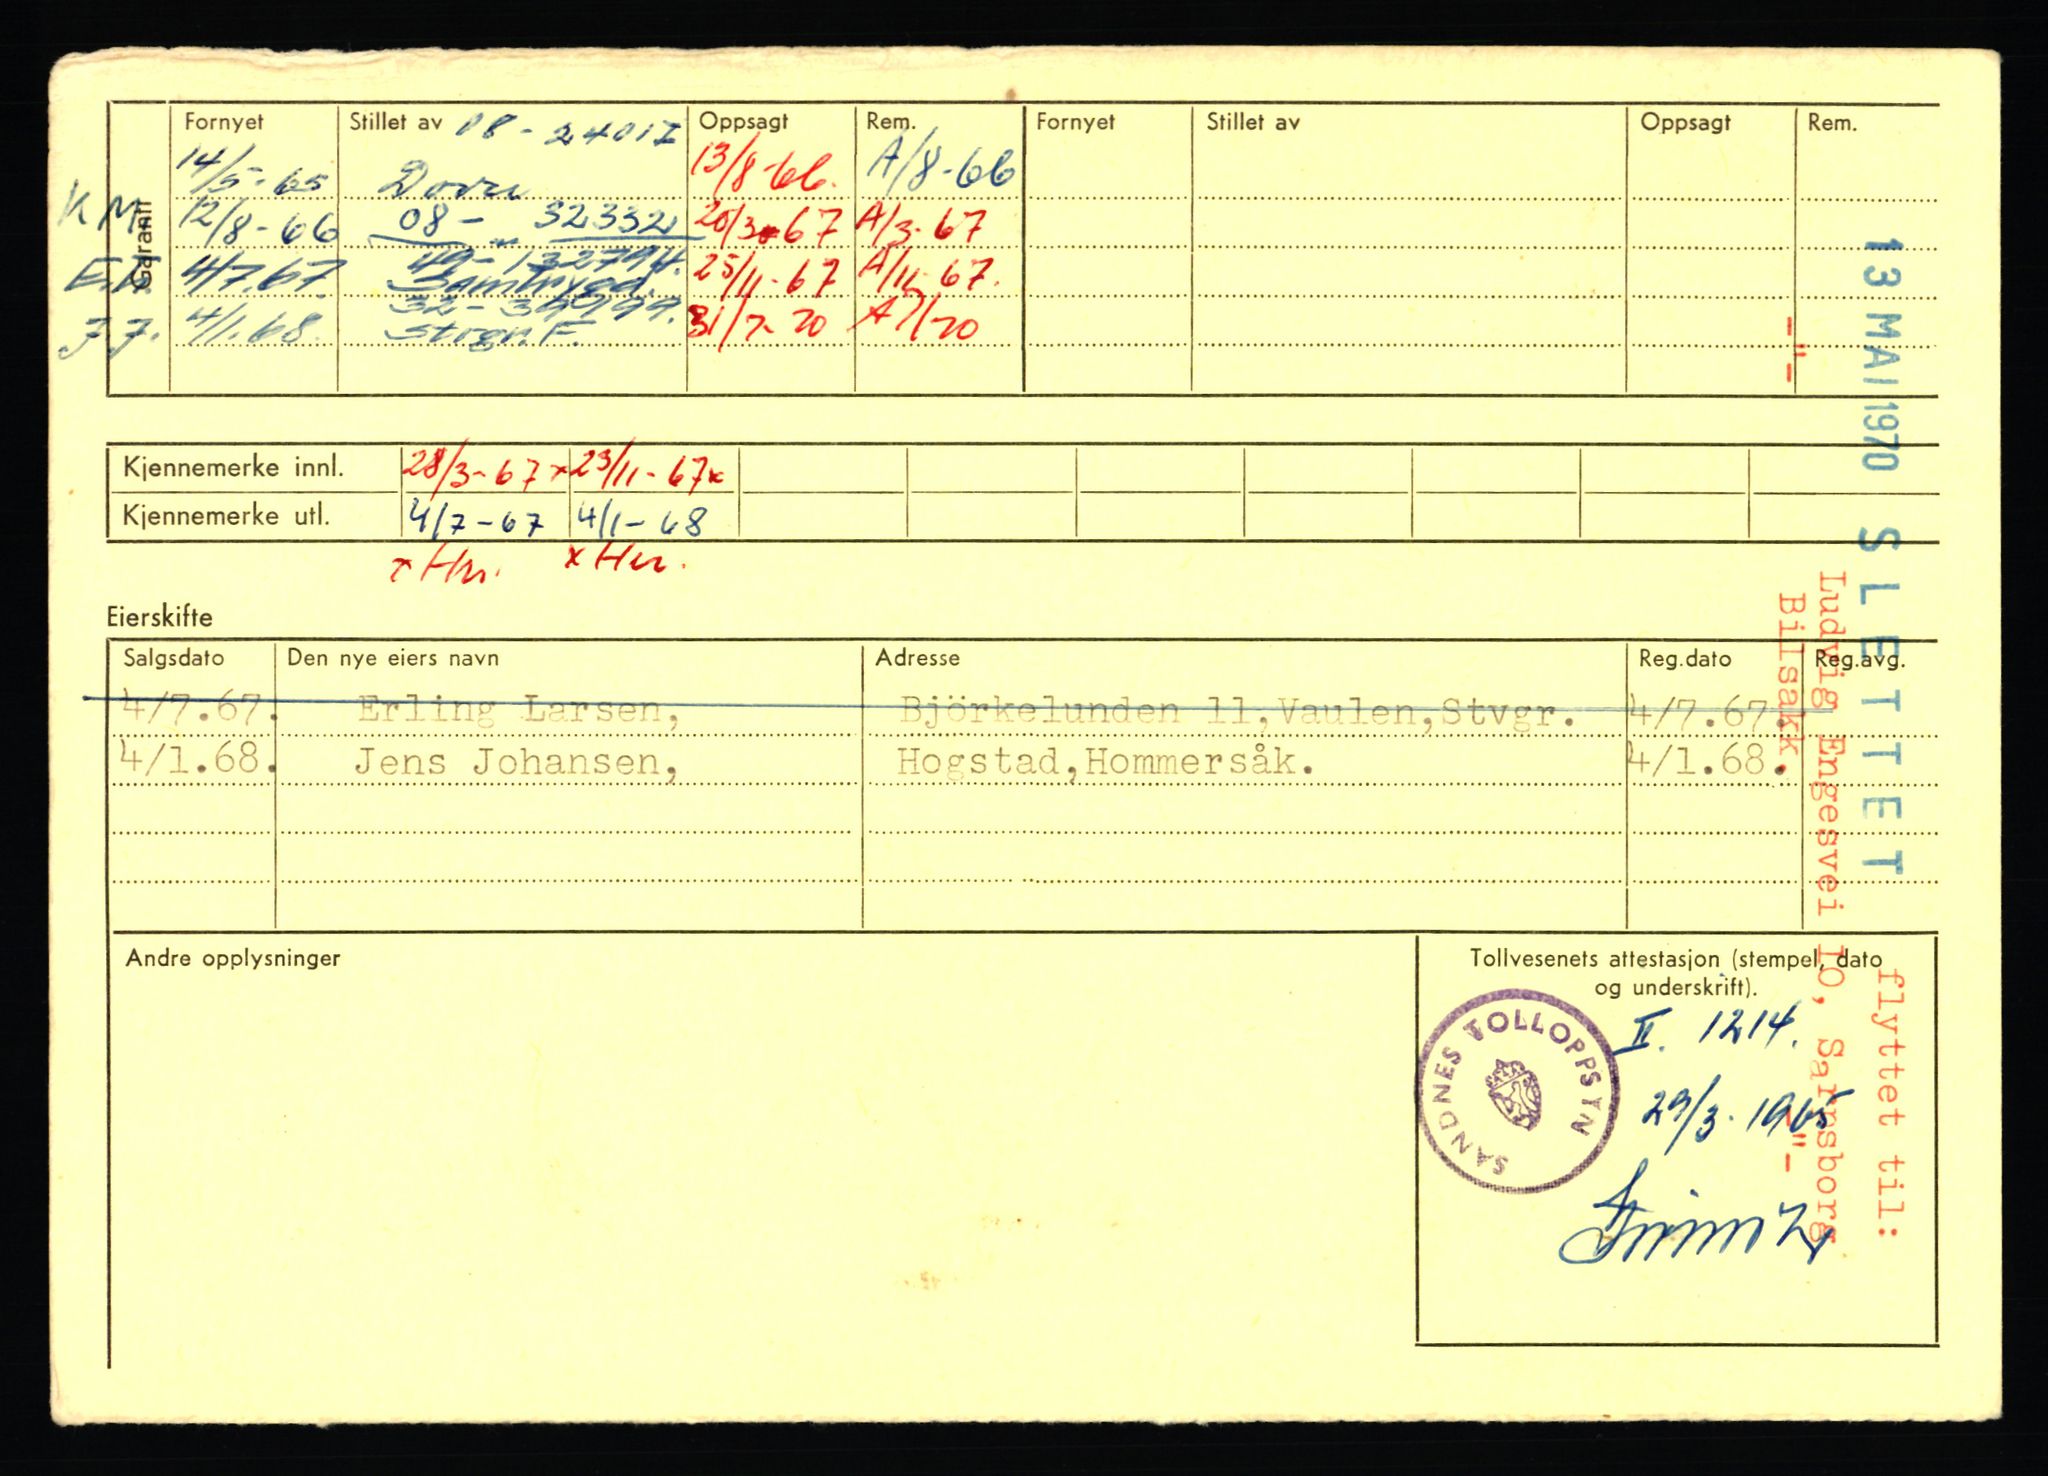 Garanti
Fornyet Stillet av 08 - 24017 Oppsagt Rem. Fornyet Stillet av Oppsagt Rem.
14/5-65 13/8-66. A/8-66
K M. 12/8-66 08 - 32332 20/3-67 A/3-67
E.L. 4/7.67. 49-132794. 25/11-67 A/11-67.
Samtrygd.
J.J. 4/1.68. Stvgr. F. 31/7-70 A7/70
Kjennemerke innl. 28/3-67x 23/11-67x
Kjennemerke utl. 4/7-67 4/1-68
x Hu. x Hu.
Eierskifte
Salgsdato Den nye eiers navn Adresse Reg.dato Reg.avg.
4/7.67. Erling Larsen, Björkelunden 11,Vaulen,Stvgr. 4/7.67.
4/1.68. Jens Johansen, Hogstad,Hommersåk. 4/1.68.
Andre opplysninger
Tollvesenets attestasjon (stempel, dato
og underskrift).
SANDNES TOLLOPPSYN
II. 1214.
29/3.1965
13 MAI 1970 SLETTET
flyttet til:
Ludvig Engesvei 10, Sarpsborg
-"- Bilsakk. -"-